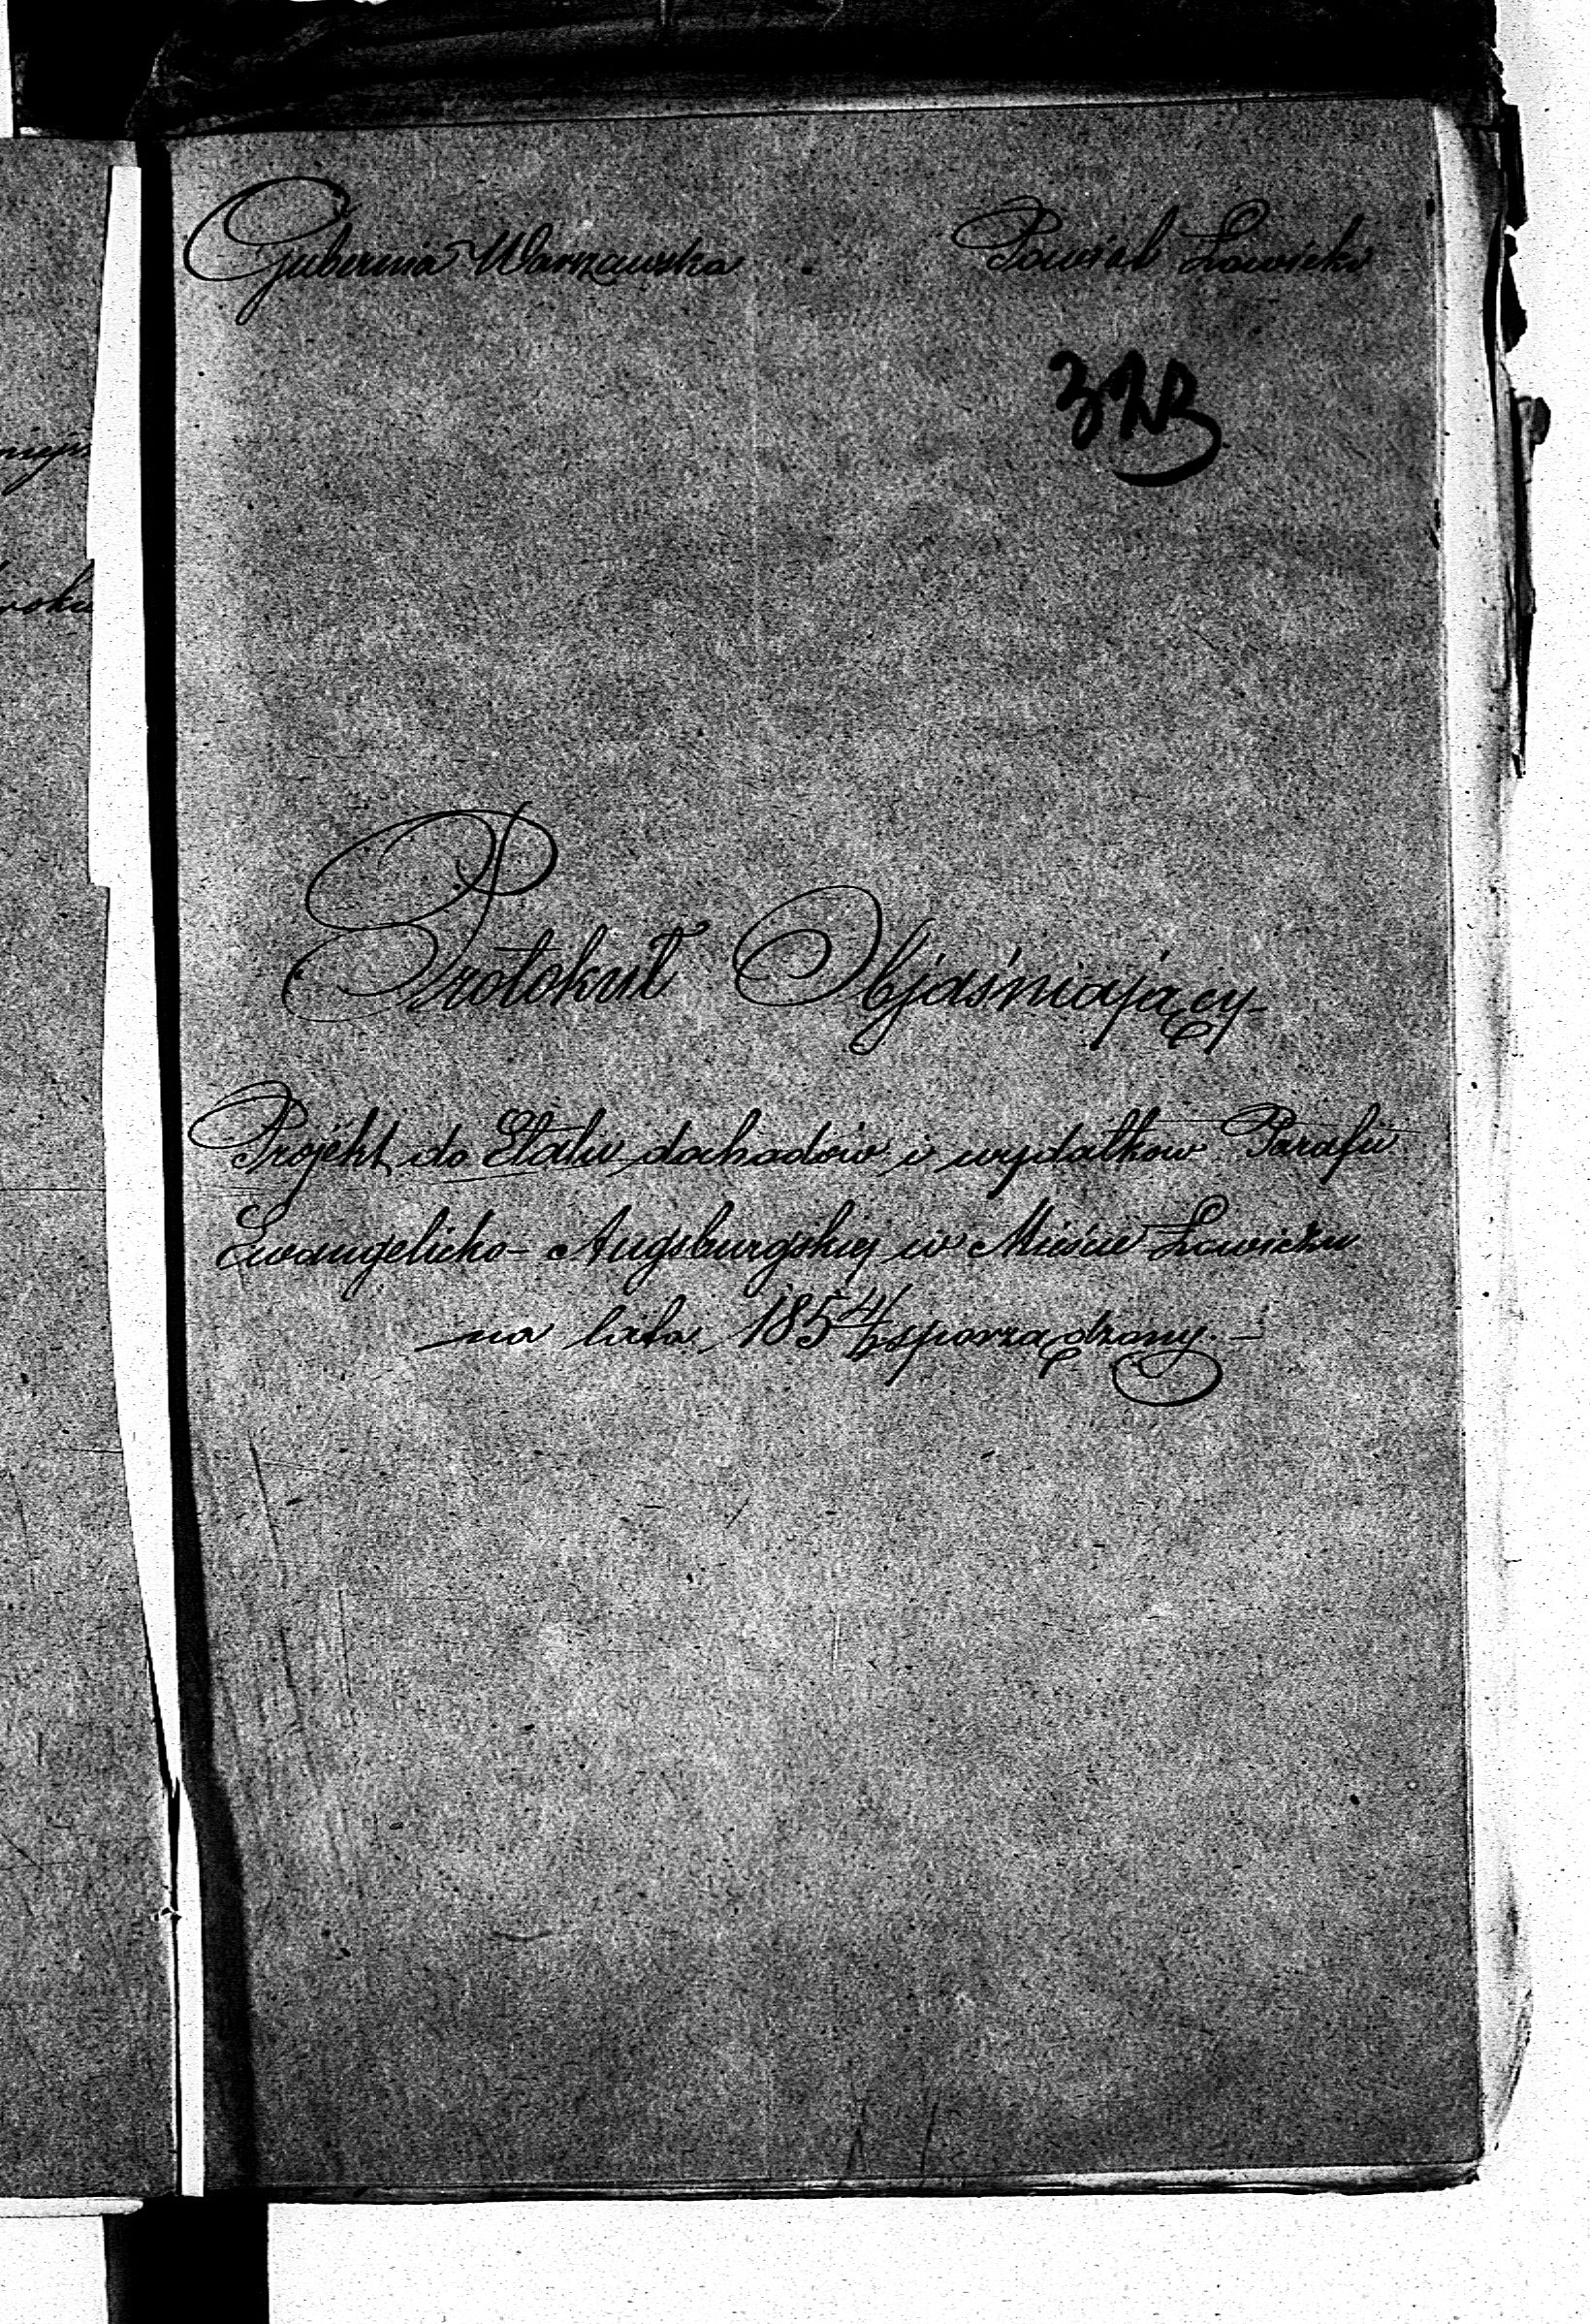 Gubernia Warszawska Powiat Łowicki
Protokuł Objaśniający
Projekt do Etatu dochodów i wydatkow Parafii
Ewangelicko-Augsburgskiej w Mieście Łowiczu
na lata 1854/ sporządzony.